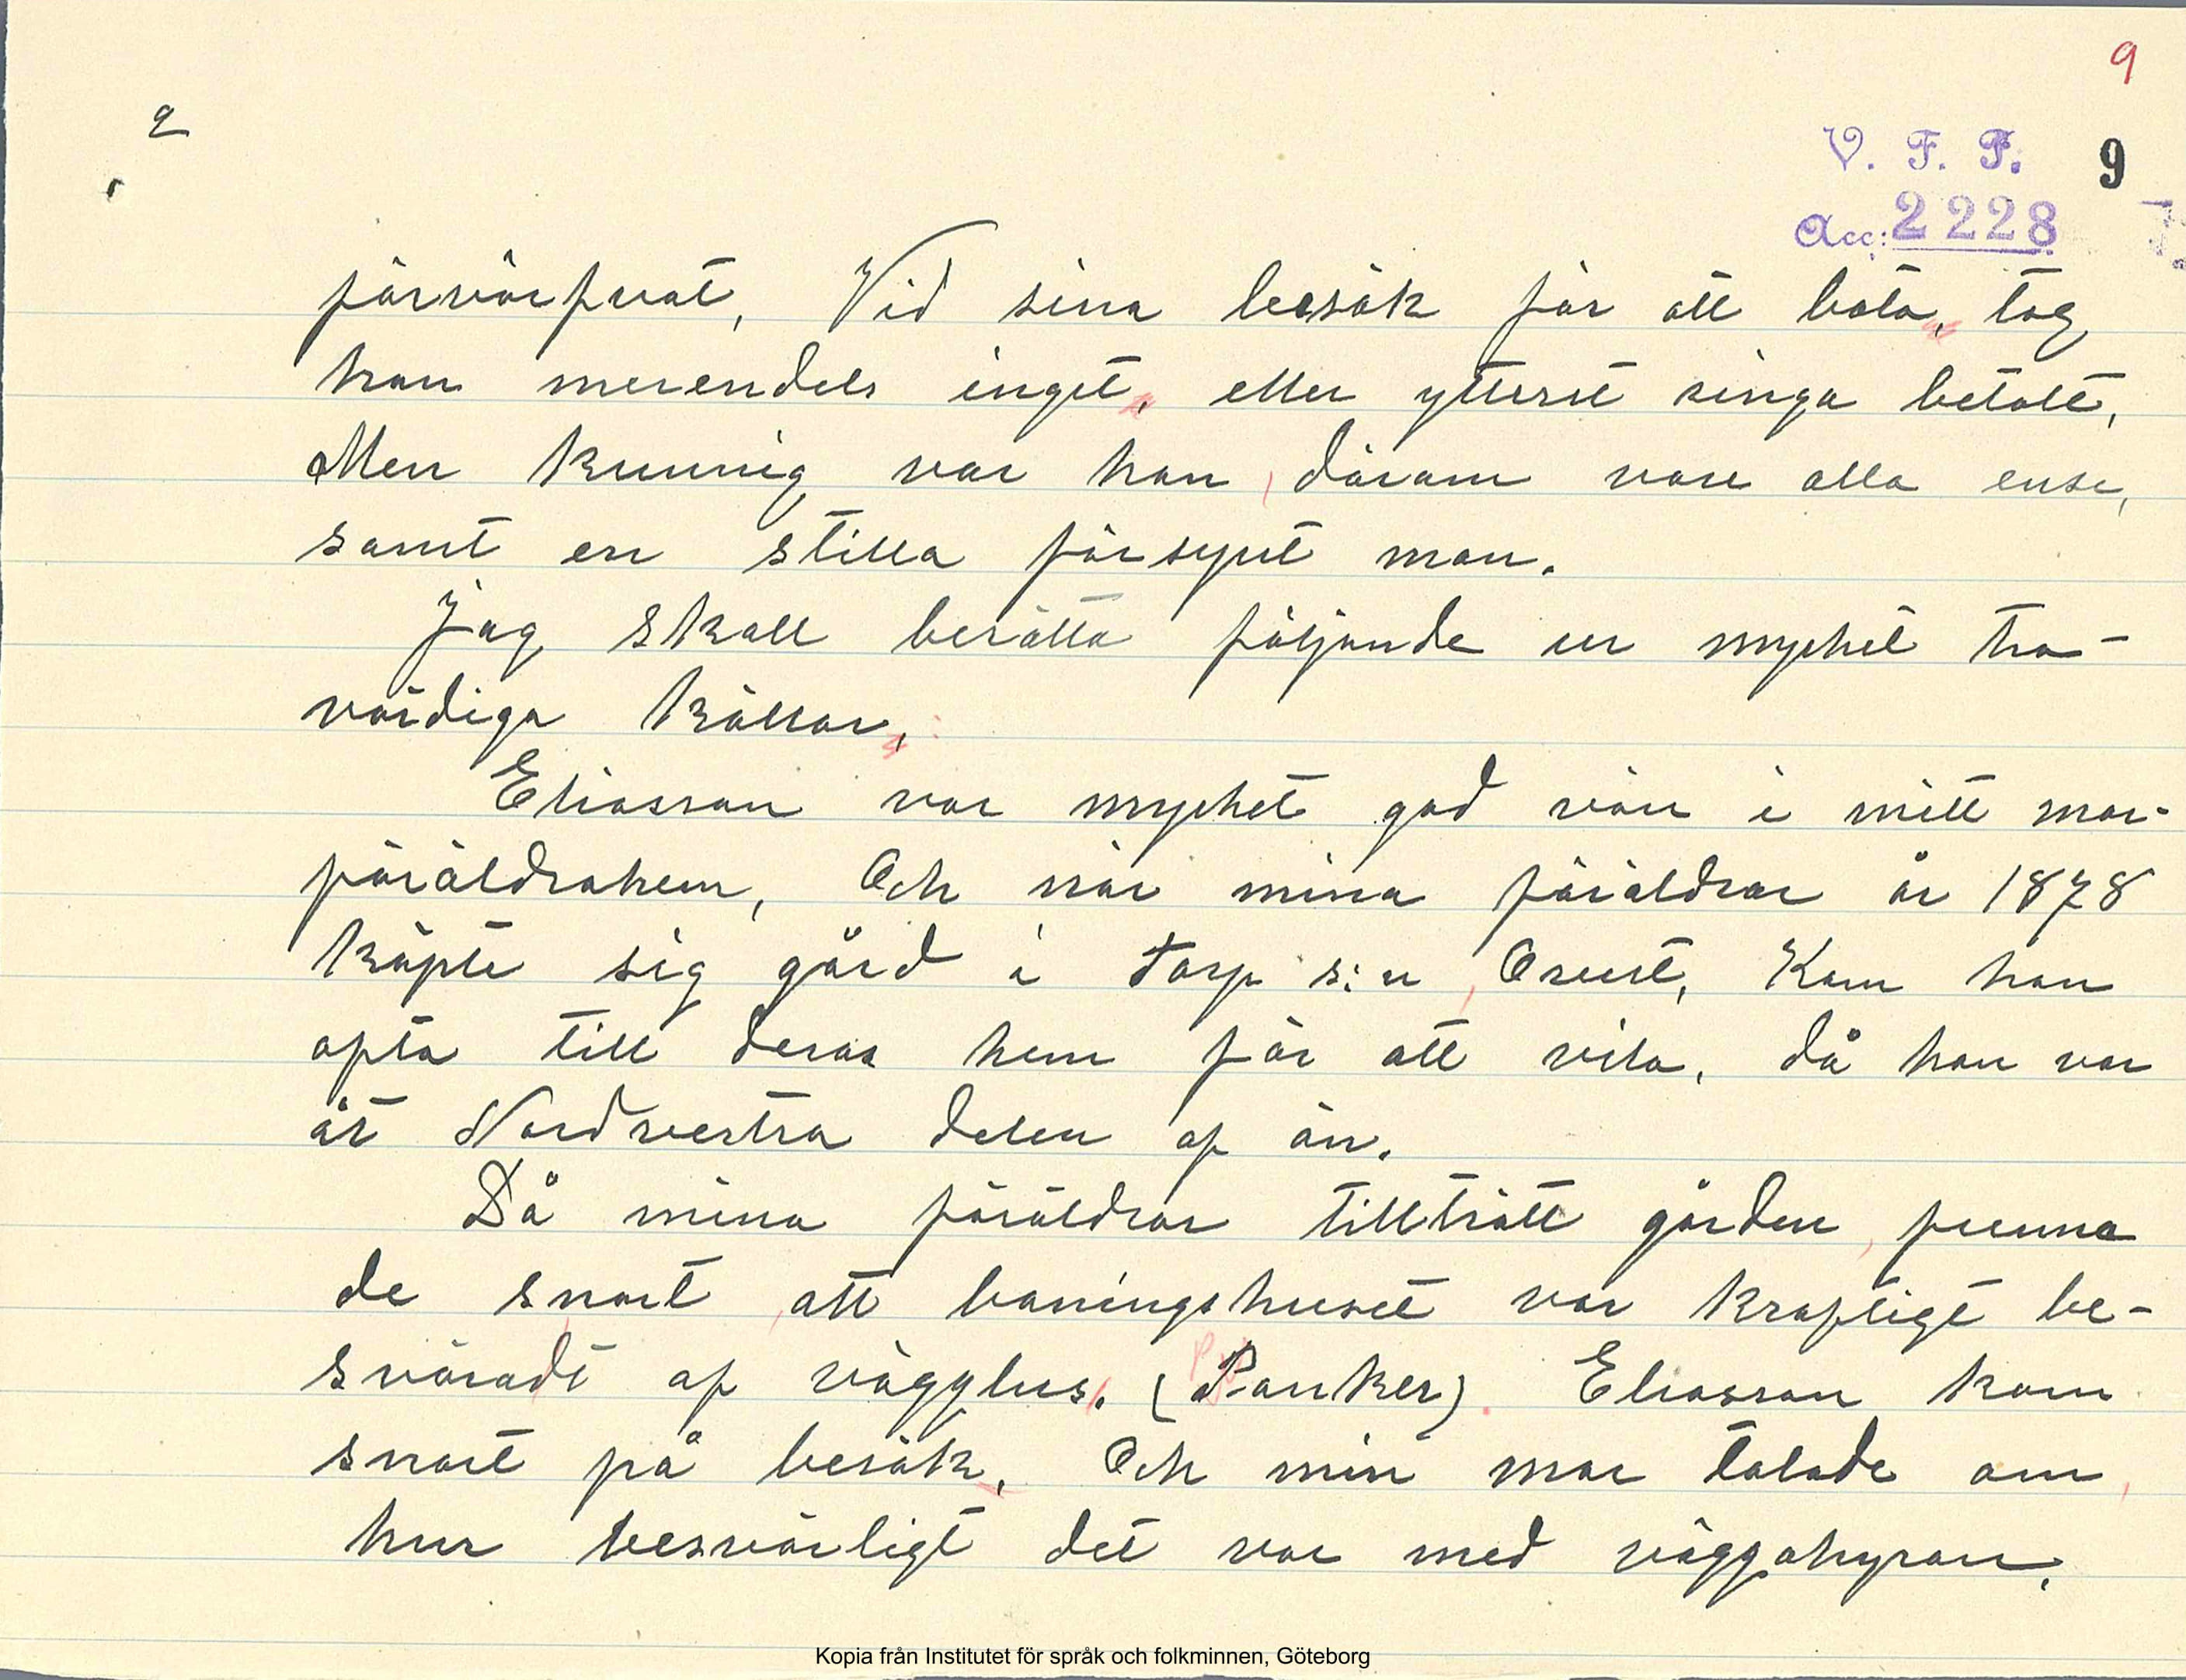 9
2
V. F. F. 9
Acc: 2228
förvärfvat, Vid sina besök för att bota, tog
han merendels inget, eller ytterst ringa betalt,
Men kunnig var han, därom voro alla ense,
samt en stilla försynt man.
Jag skall berätta följande ur mycket tro-
värdiga källor,:
Eliasson var mycket god vän i mitt mor-
föräldrahem, Och när mina föräldrar år 1878
köpte sig gård i Torp s:n, Orust, Kom han
ofta till deras hem för att vila, då han var
åt Nordvestra delen af ön.
Då mina föräldrar tillträtt gården, funno
de snart, att boningshuset var kraftigt be-
sväradt af vägglus. (Panker). Eliasson kom
snart på besök, Och min mor talade om,
hur besvärligt det var med väggohyran.
Kopia från Institutet för språk och folkminnen, Göteborg